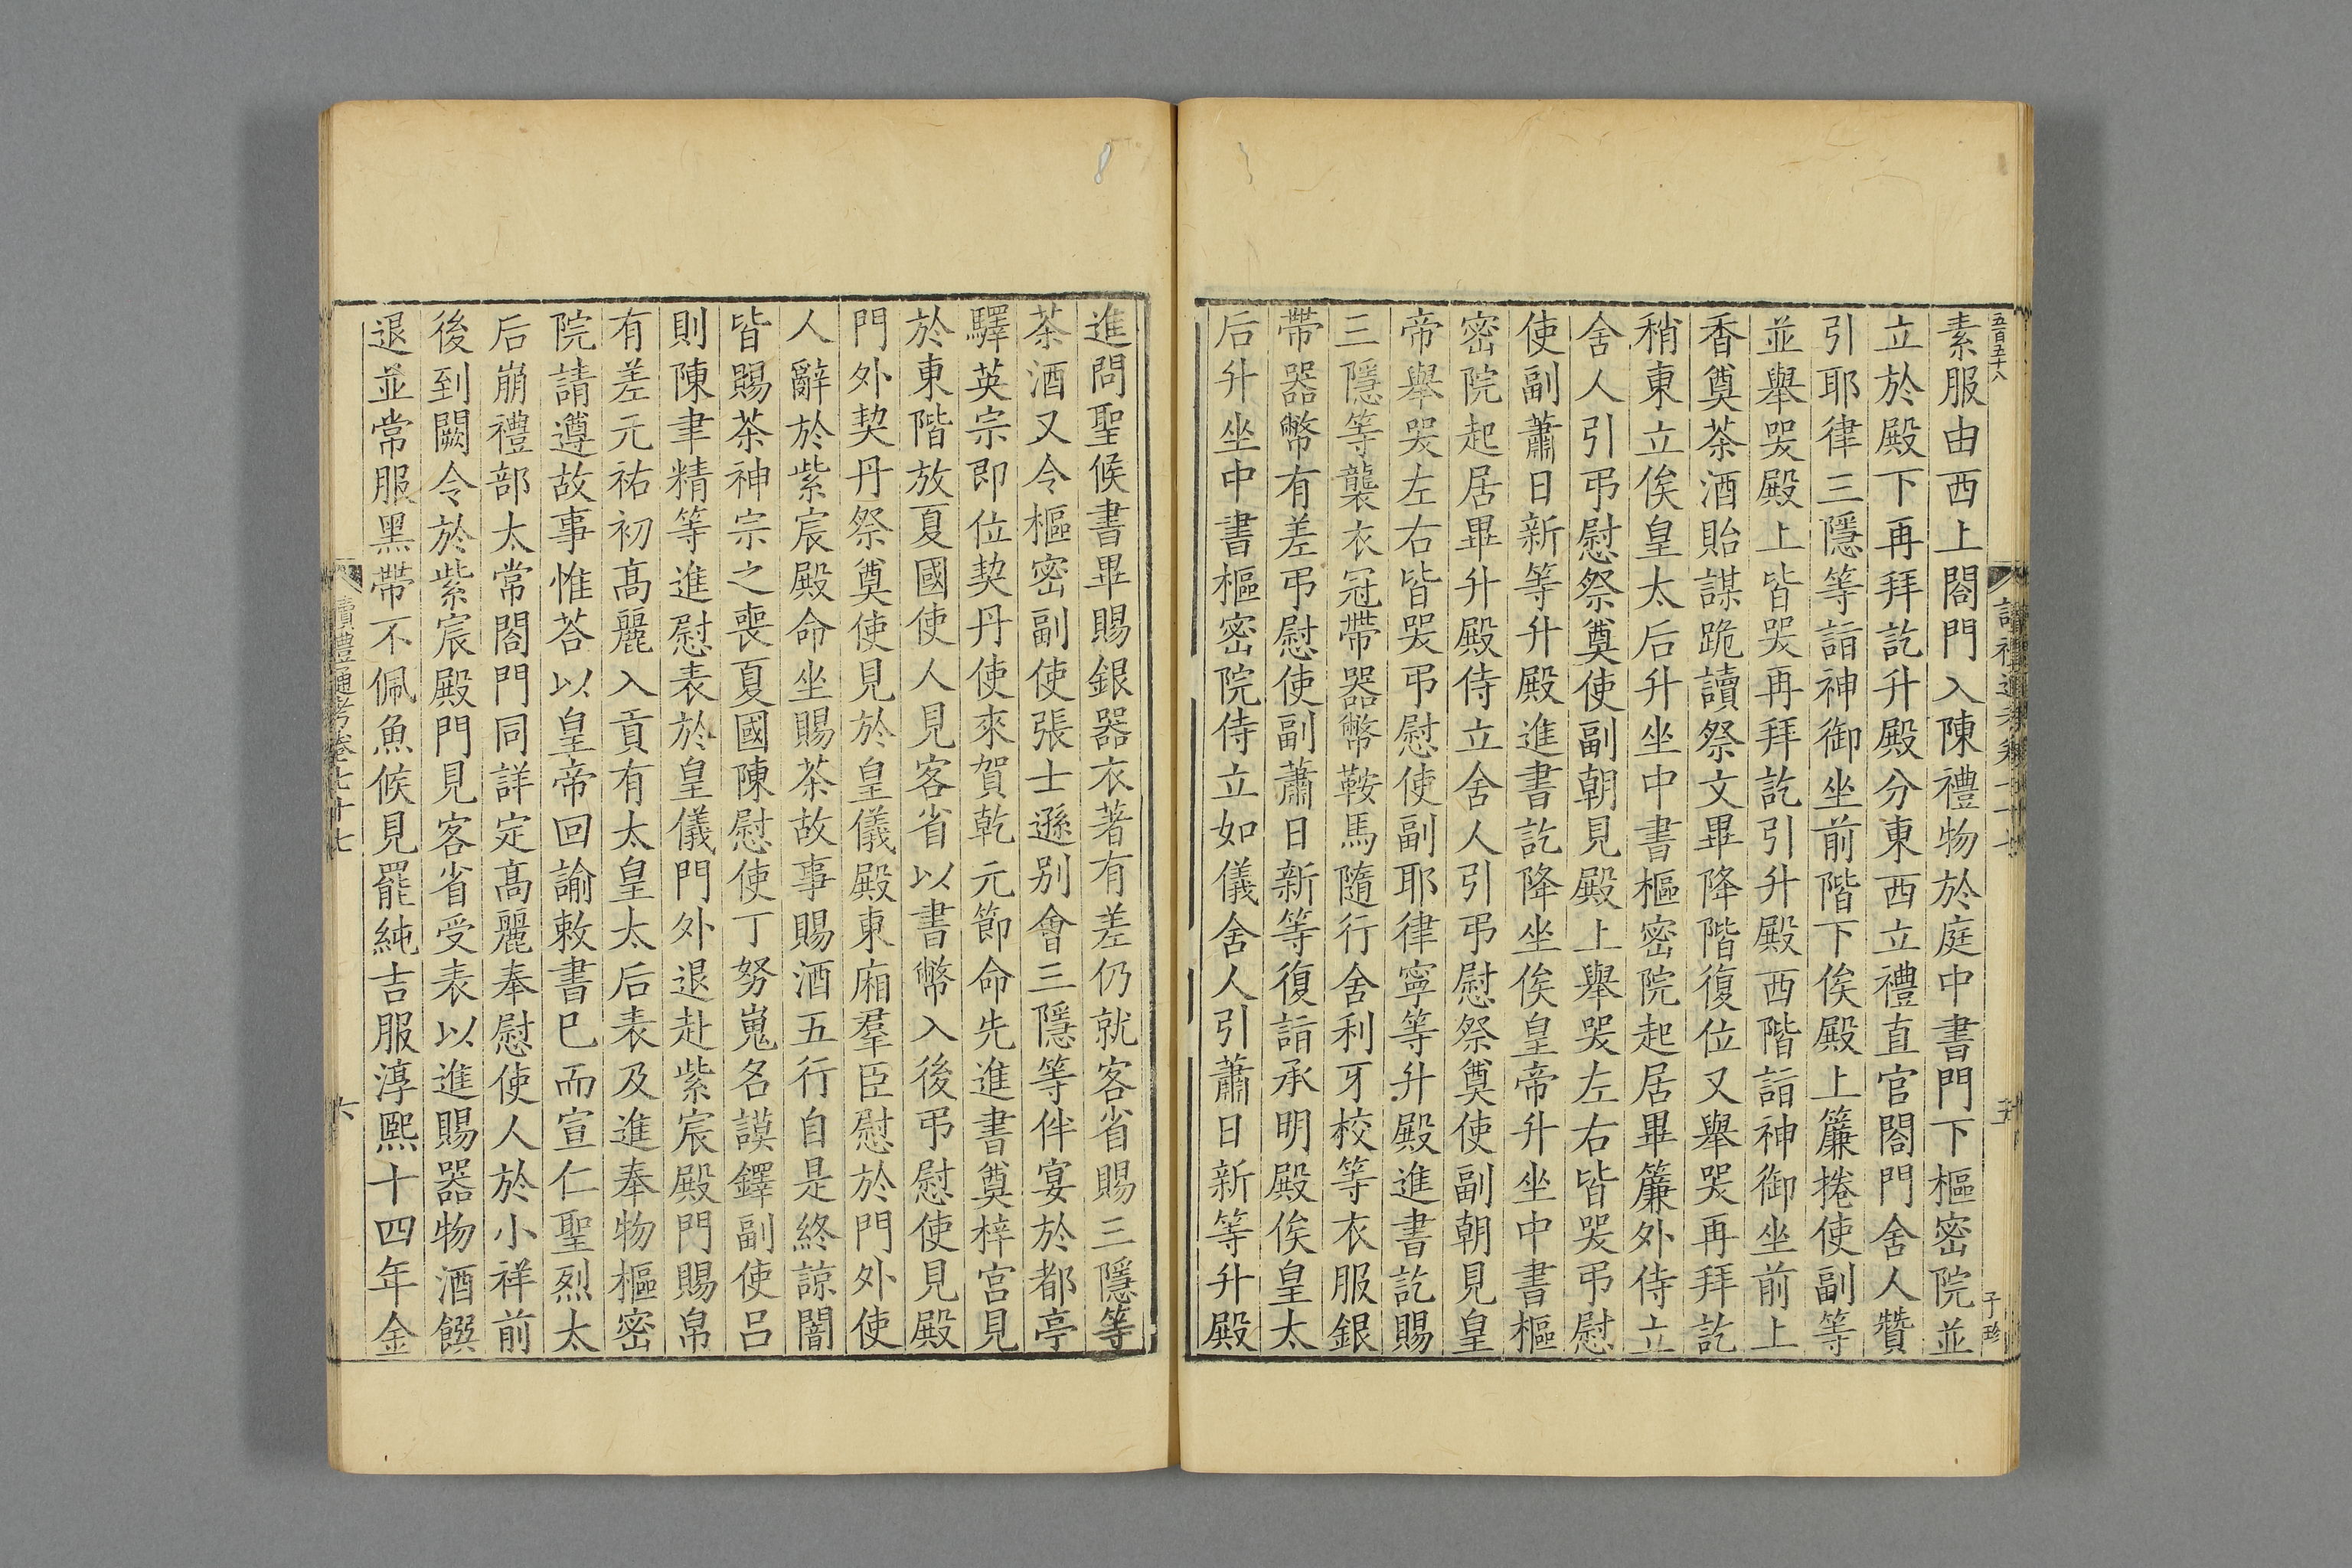 五百五十八
讀禮通考卷七十七
五
子珍
素服由西上閤門入陳禮物於庭中書門下樞密院並
立於殿下再拜訖升殿分東西立禮直官閤門舍人贊
引耶律三隱等詣神御坐前階下俟殿上簾捲使副等
並舉哭殿上皆哭再拜訖引升殿西階詣神御坐前上
香奠茶酒貽謀跪讀祭文畢降階復位又舉哭再拜訖
稍東立俟皇太后升坐中書樞密院起居畢簾外侍立
舍人引弔慰祭奠使副朝見殿上舉哭左右皆哭弔慰
使副蕭日新等升殿進書訖降坐俟皇帝升坐中書樞
密院起居畢升殿侍立舍人引弔慰祭奠使副朝見皇
帝舉哭左右皆哭弔慰使副耶律寧等升殿進書訖賜
三隱等襲衣冠帶器幣鞍馬隨行舍利牙校等衣服銀
帶器幣有差弔慰使副蕭日新等復詣承明殿俟皇太
后升坐中書樞密院侍立如儀舍人引蕭日新等升殿
進問聖候書畢賜銀器衣著有差仍就客省賜三隱等
茶酒又令樞密副使張士遜别會三隱等伴宴於都亭
驛英宗即位契丹使來賀乾元節命先進書奠梓宮見
於東階放夏國使人見客省以書幣入後弔慰使見殿
門外契丹祭奠使見於皇儀殿東廂羣臣慰於門外使
人辭於紫宸殿命坐賜茶故事賜酒五行自是終諒闇
皆賜茶神宗之喪夏國陳慰使丁努嵬名謨鐸副使呂
則陳聿精等進慰表於皇儀門外退赴紫宸殿門賜帛
有差元祐初髙麗入貢有太皇太后表及進奉物樞密
院請遵故事惟荅以皇帝回諭敕書巳而宣仁聖烈太
后崩禮部太常閤門同詳定髙麗奉慰使人於小祥前
後到闕令於紫宸殿門見客省受表以進賜器物酒饌
退並常服黑帶不佩魚候見罷純吉服淳熙十四年金
讀禮通考卷七十七
六